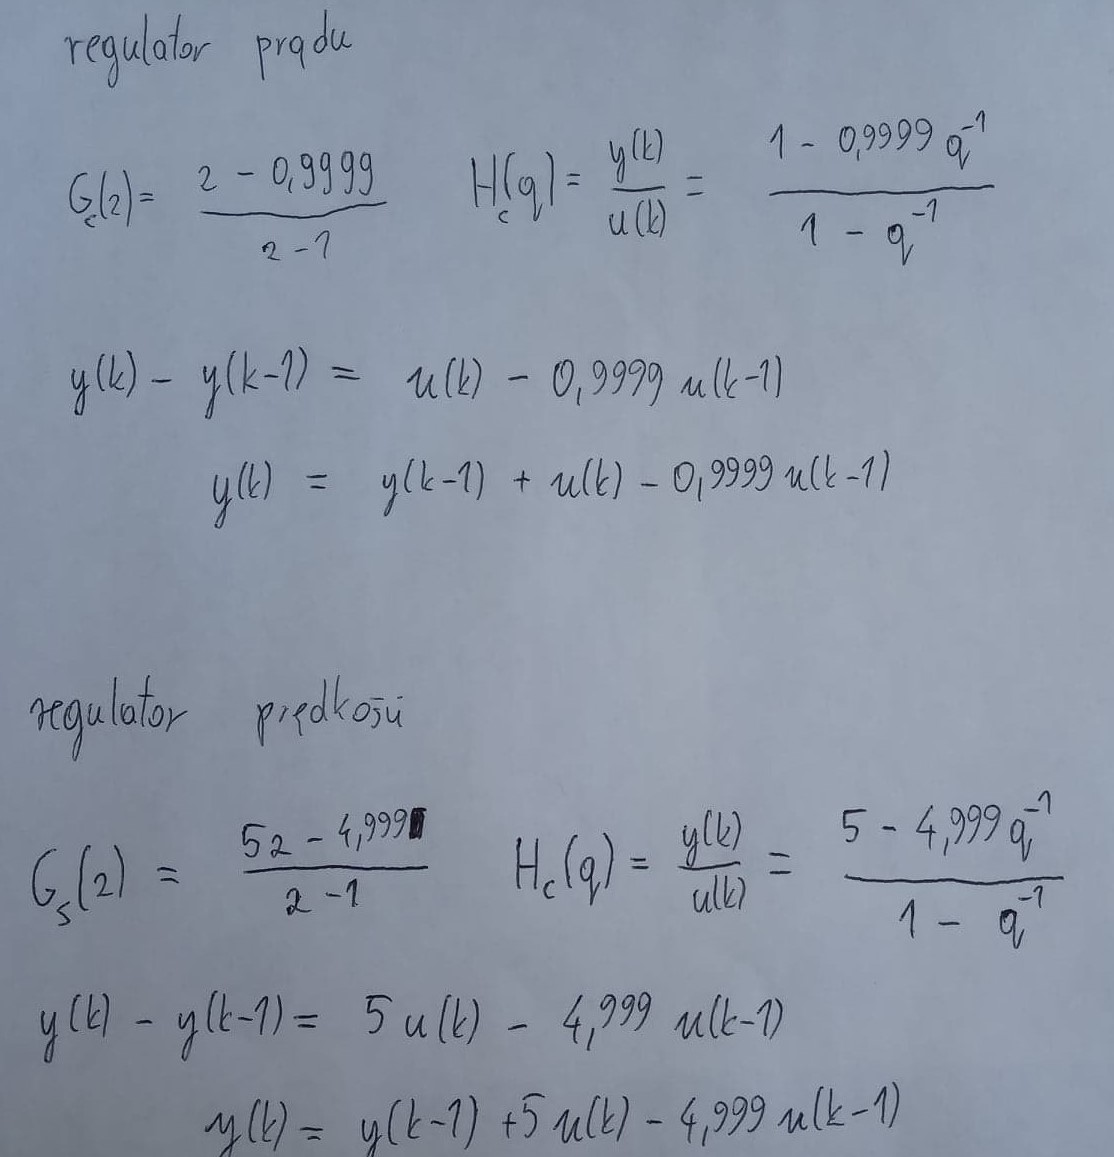 regulator prądu
G_c(z) = (z - 0,9999)/(z - 1)   H_c(q) = y(k)/u(k) = (1 - 0,9999 q^-1)/(1 - q^-1)
y(k) - y(k-1) = u(k) - 0,9999 u(k-1)
y(k) = y(k-1) + u(k) - 0,9999 u(k-1)
regulator prędkości
G_s(z) = (5z - 4,999)/(z - 1)   H_c(q) = y(k)/u(k) = (5 - 4,999 q^-1)/(1 - q^-1)
y(k) - y(k-1) = 5 u(k) - 4,999 u(k-1)
y(k) = y(k-1) + 5 u(k) - 4,999 u(k-1)